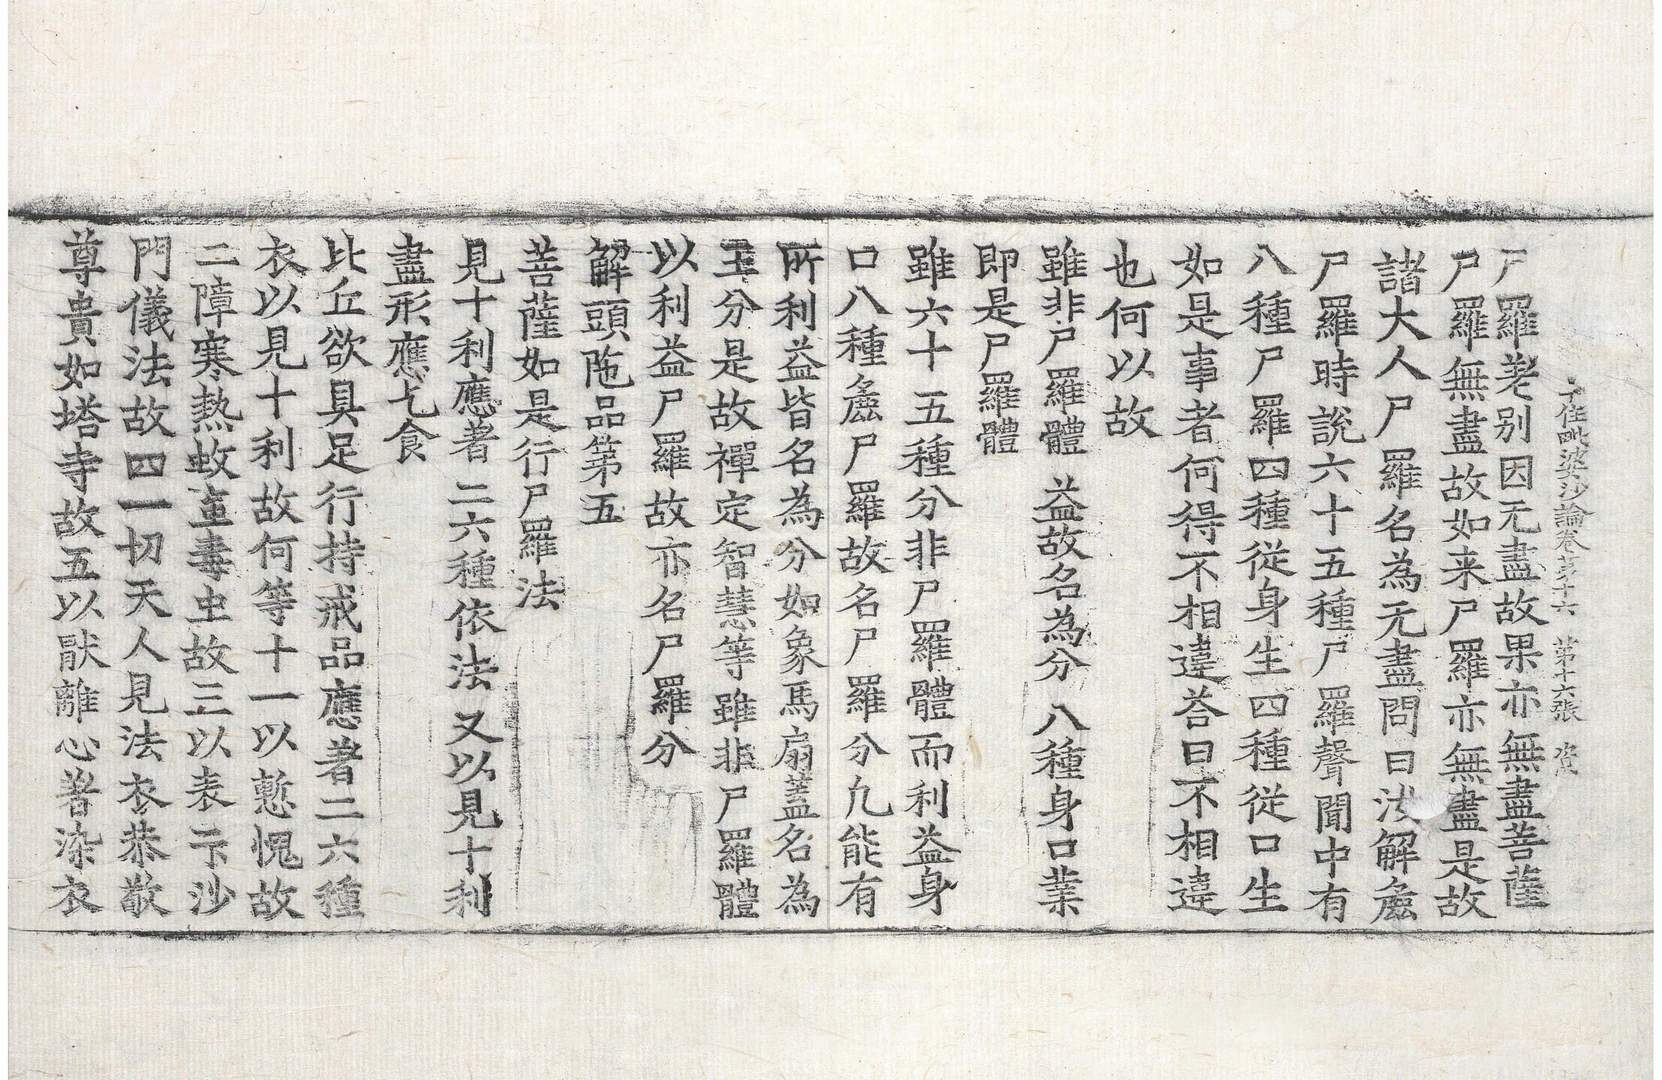 十住毗婆沙論卷第十六 第十六張
尸羅差別因无盡故果亦無盡菩薩
尸羅無盡故如来尸羅亦無盡是故
諸大人尸羅名為无盡問曰汝解麁
尸羅時說六十五種尸羅聲聞中有
八種尸羅四種從身生四種從口生
如是事者何得不相違荅曰不相違
也何以故
雖非尸羅體 益故名為分 八種身口業
即是尸羅體
雖六十五種分非尸羅體而利益身
口八種麁尸羅故名尸羅分九能有
所利益皆名為分如象馬扇蓋名為
王分是故禪定智慧等雖非尸羅體
以利益尸羅故亦名尸羅分
解頭陁品第五
菩薩如是行尸羅法
見十利應著 二六種依法 又以見十利
盡形應乞食
比丘欲具足行持戒品應著二六種
衣以見十利故何等十一以慙愧故
二障寒熱蚊䖟毒虫故三以表示沙
門儀法故四一切天人見法衣恭敬
尊貴如塔寺故五以猒離心著染衣